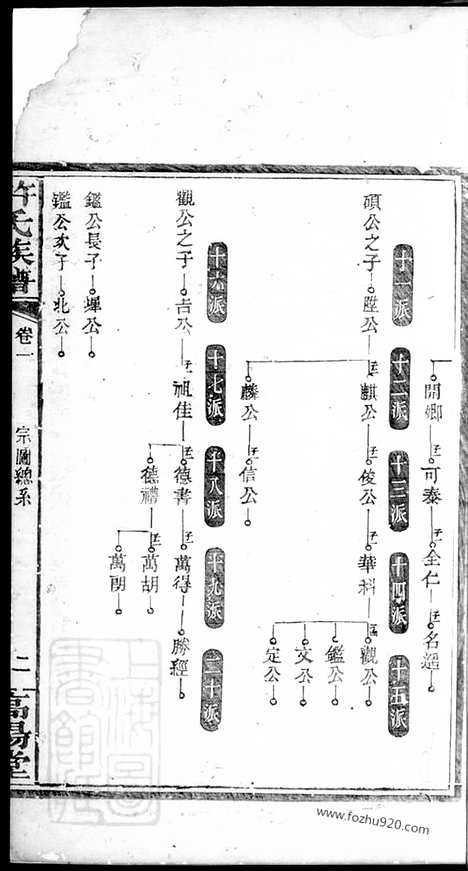 開鄉 可泰 全仁 名迥
十一派 十二派 十三派 十四派 十五派
碩公之子 陞公 麒公 俊公 華科 觀公
鑑公
文公
定公
麟公 信公
十六派 十七派 十八派 十九派 二十派
觀公之子 吉公 祖佳 德書 萬得 勝經
德禮 萬胡
萬朗
鑑公長子 墀公
鑑公次子 北公
許氏族譜 卷一 宗圖總系 二 高陽堂
www.fozhu920.com